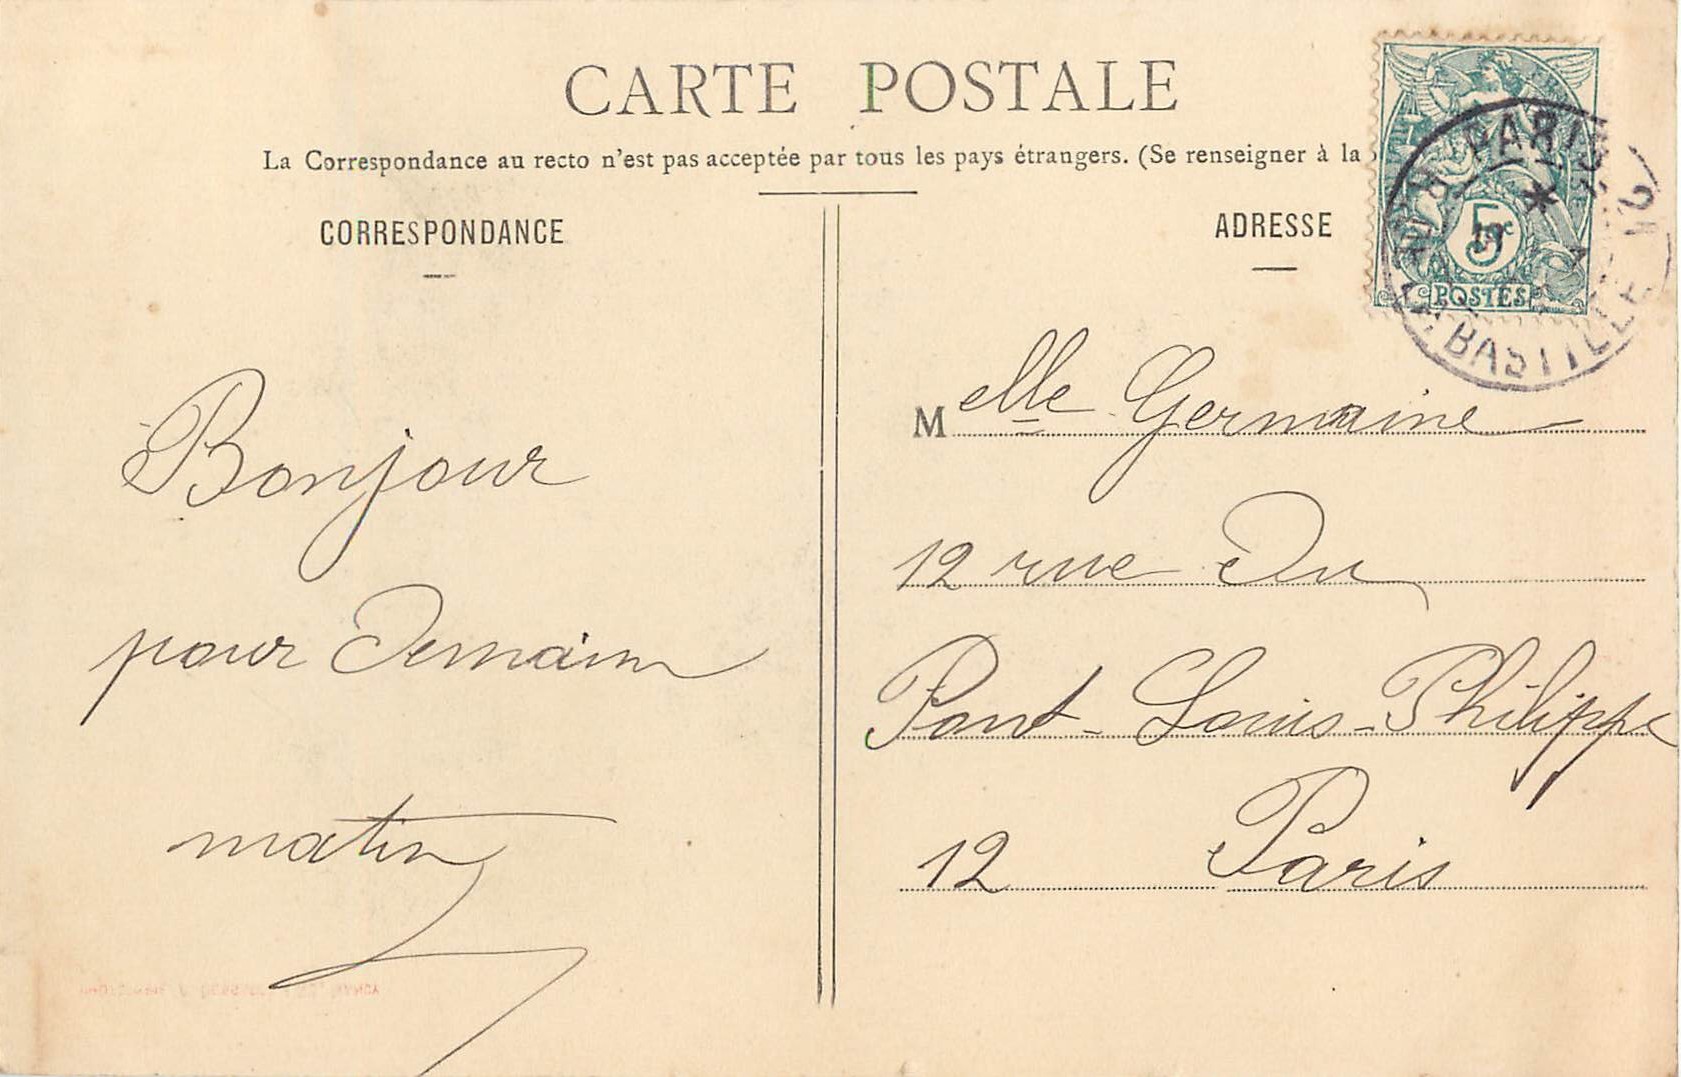 CARTE POSTALE
La Correspondance au recto n'est pas acceptée par tous les pays étrangers. (Se renseigner à la
CORRESPONDANCE
ADRESSE
5c
POSTES
PARIS
BASTILLE
Bonjour
pour Demain
matin
Melle Germaine
12 rue Du
Pont-Louis-Philippe
12 Paris